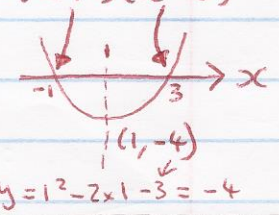 x
-1
3
(1, -4)
y = 1² - 2 × 1 - 3 = -4